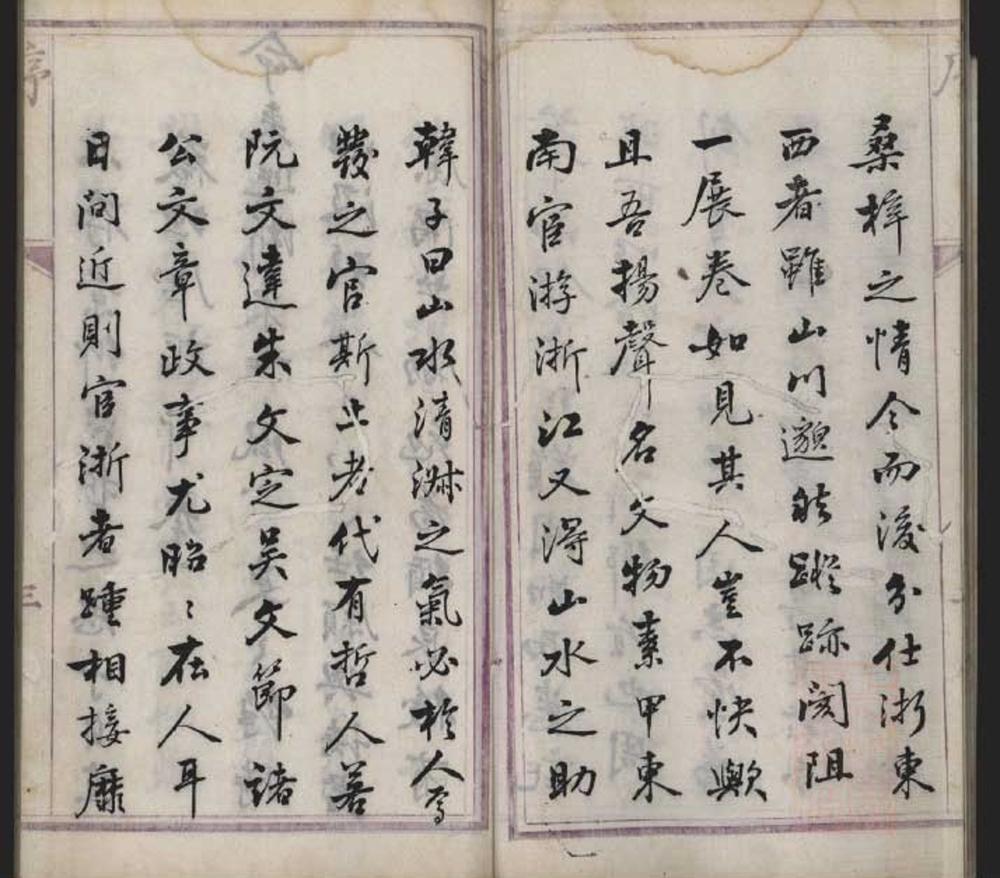 桑梓之情今而後分仕浙東
西者雖山川邈然蹤跡闊阻
一展卷如見其人豈不快歟
且吾揚聲名文物素甲東
南宦游浙江又得山水之助
韓子曰山水清淑之氣必於人焉
發之官斯土者代有哲人若
阮文達朱文定吳文節諸
公文章政事尤昭〻在人耳
目間近則官浙者踵相接靡
序
三